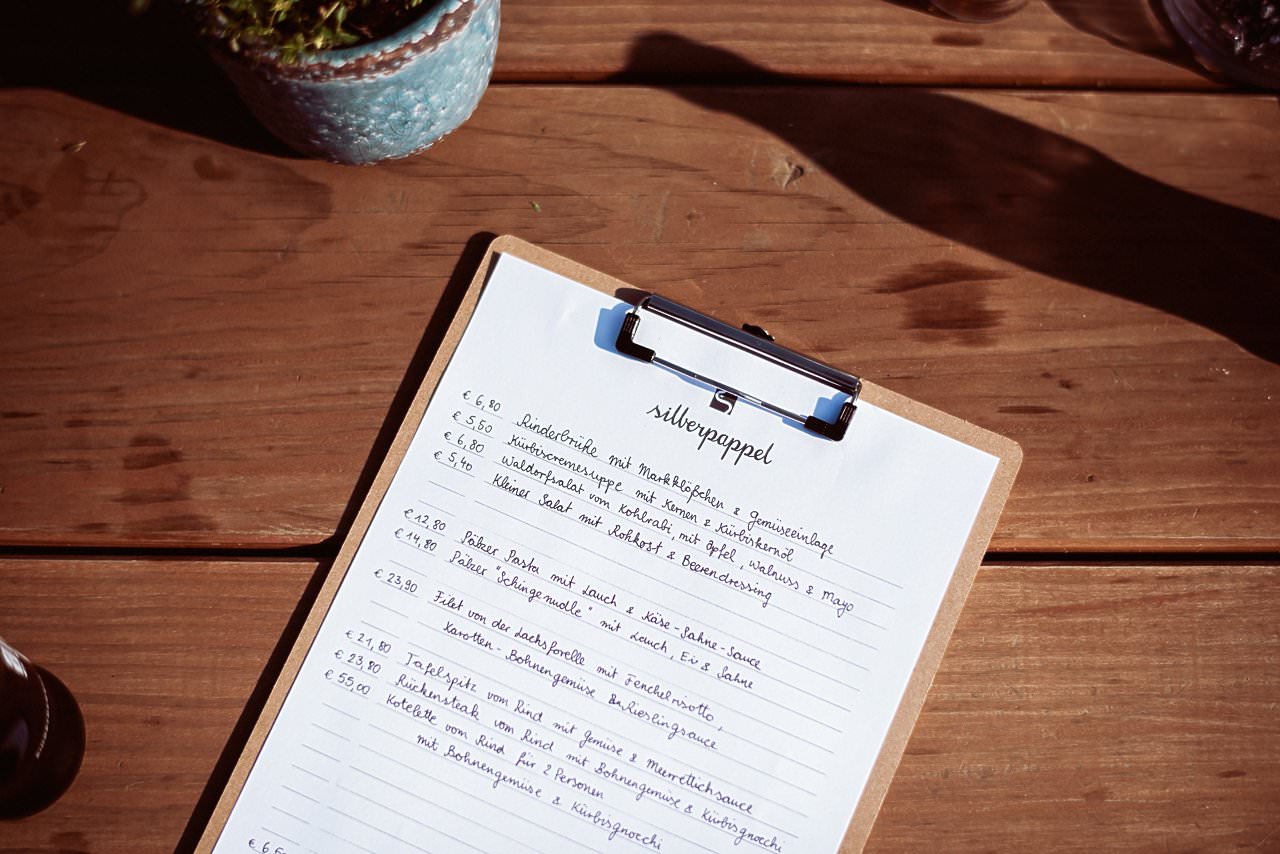 silberpappel
€ 6,80 Rinderbrühe mit Markklößchen & Gemüseeinlage
€ 5,50 Kürbiscremesuppe mit Kernen & Kürbiskernöl
€ 6,80 Waldorfsalat vom Kohlrabi, mit Apfel, Walnuss & Mayo
€ 5,40 Kleiner Salat mit Rohkost & Beerendressing
€ 12,80 Pälzer Pasta mit Lauch & Käse-Sahne-Sauce
€ 14,80 Pälzer "Schingenudle" mit Lauch, Ei & Sahne
€ 23,90 Filet von der Lachsforelle mit Fenchelrisotto,
Karotten-Bohnengemüse & Rieslingsauce
€ 21,80 Tafelspitz vom Rind mit Gemüse & Meerrettichsauce
€ 23,80 Rückensteak vom Rind mit Bohnengemüse & Kürbisgnocchi
€ 55,00 Kotelette vom Rind für 2 Personen
mit Bohnengemüse & Kürbisgnocchi